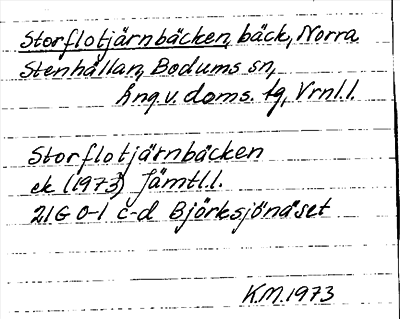 Storflotjärnbäcken, bäck, Norra
Stenhållan, Bodums sn,
Ång.v. doms. tg, Vrnl.l.
Storflotjärnbäcken
ek (1973) Jämtl.l.
21G 0-1 c-d Björksjönäset
K.M. 1973